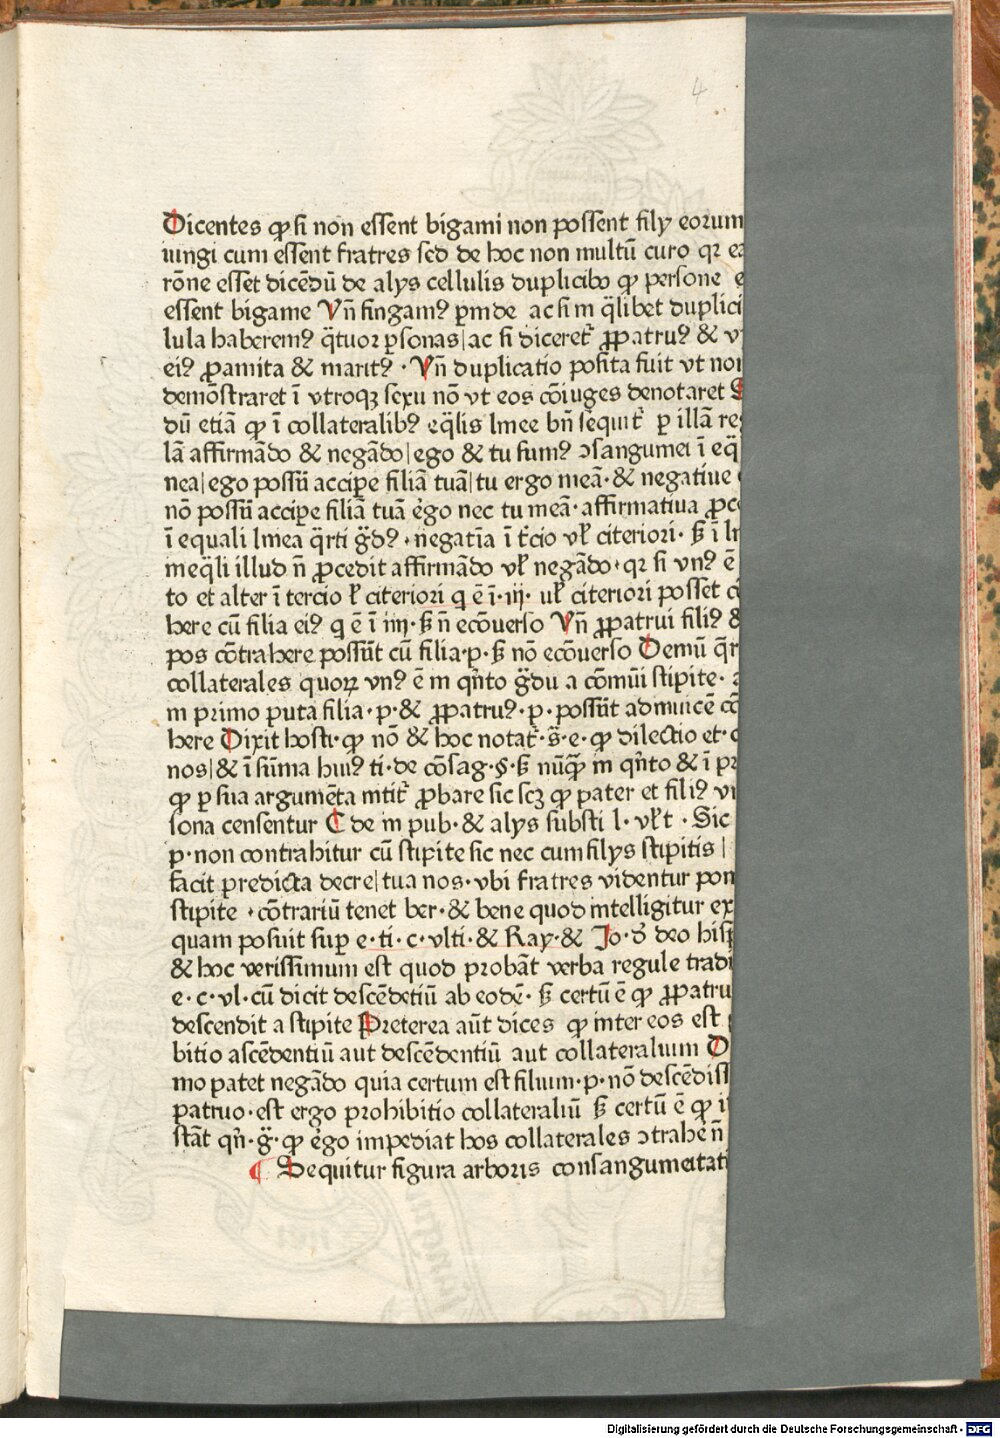 4
Dicentes ꝙ si non essent bigami non possent filÿ eorum
iungi cum essent fratres sed de hoc non multū curo qꝛ ea
rōne esset dicēdū de alÿs cellulis duplicibꝰ ꝙ persone e
essent bigame Vn̄ fingamꝰ ꝑinde ac si in q̄libet duplici
lula haberemꝰ q̄tuor ꝑsonas|ac si diceret̉ ꝓpatruꝰ & v
eiꝰ ꝓamita & maritꝰ · Vn̄ duplicatio posita fuit vt non
demōstraret ī vtroqꝫ sexu nō vt eos cōiuges denotaret
dū etiā ꝙ ī collateralibꝰ eq̄lis linee bn̄ sequit̉ ꝑ illā re
lā affirmādo & negādo|ego & tu sumꝰ ↄsanguinei ī eq̄
nea|ego possū accipe filiā tuā|tu ergo meā·& negatiue
nō possū accipe filiā tuā ego nec tu meā·affirmatiua ꝓc
ī equali linea q̄rti g̈dꝰ·negatīa ī t̉cio vł citeriori· ꝭ ī li
ineq̄li illud n̄ ꝓcedit affirmādo vł negādo·qꝛ si vnꝰ ē
to et alter ī tercio ł citeriori q ē ī·iij· uł citeriori posset c
here cū filia eiꝰ q ē ī iiij·ꝭ n̄ ecōuerso Vn̄ ꝓpatrui filiꝰ &
pos cōtrahere possūt cū filia·p·ꝭ nō ecōuerso Demū q̄r
collaterales quoꝝ vnꝰ ē in qn̄to g̈du a cōmūi stipite·
in primo puta filia·p·& ꝓpatruꝰ·p·possūt adinuicē cō
here Dixit hosti·ꝙ nō & hoc notat̉·s̄·e·ꝙ dilectio et·
nos|& ī sūma huiꝰ ti·de cōsag·§·ꝭ nūꝙ̄ in qn̄to & ī pr
ꝙ ꝑ sua argumēta intit̉ ꝓbare sic scꝫ ꝙ pater et filiꝰ v
sona censentur C de in pub·& alÿs substi l·vłt · Sic
p·non contrahitur cū stipite sic nec cum filÿs stipitis|
facit predicta decre|tua nos·vbi fratres videntur pon
stipite ·cōtrariū tenet ber·& bene quod intelligitur ex
quam posuit suꝑ e·ti·c·vlti·& Ray·& Jo·d̄ deo hisp
& hoc verissimum est quod probāt verba regule tradi
e·c·vl·cū dicit descēdetiū ab eodē·ꝭ certū ē ꝙ ꝓpatru
descendit a stipite Preterea aūt dices ꝙ inter eos est
bitio ascēdentiū aut descēdentiū aut collateralium
mo patet negādo quia certum est filium·p·nō descēdiss
patruo·est ergo prohibitio collateraliū ꝭ certū ē ꝙ i
stāt qn̄·g̈·ꝙ ego impediat hos collaterales ↄtrahēn̄
¶ Sequitur figura arboris consanguineitati
Digitalisierung gefördert durch die Deutsche Forschungsgemeinschaft - DFG